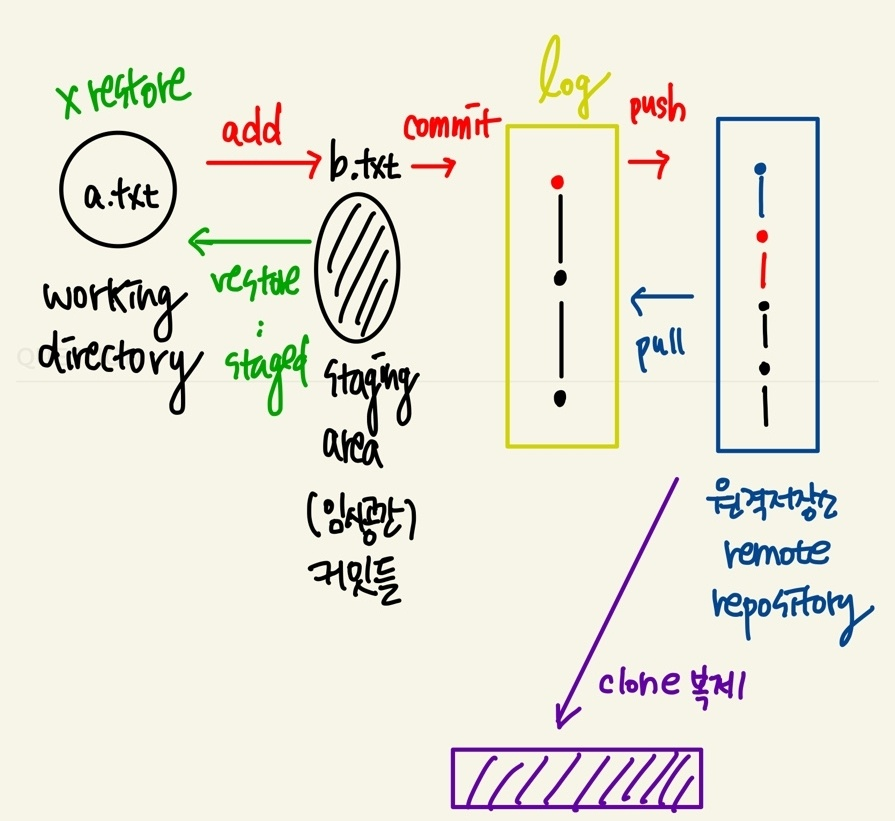 x restore
a.txt
working
directory
add
restore
:
staged
b.txt
staging
area
(임시공간)
커밋들
commit
log
push
pull
원격저장소
remote
repository
clone 복제